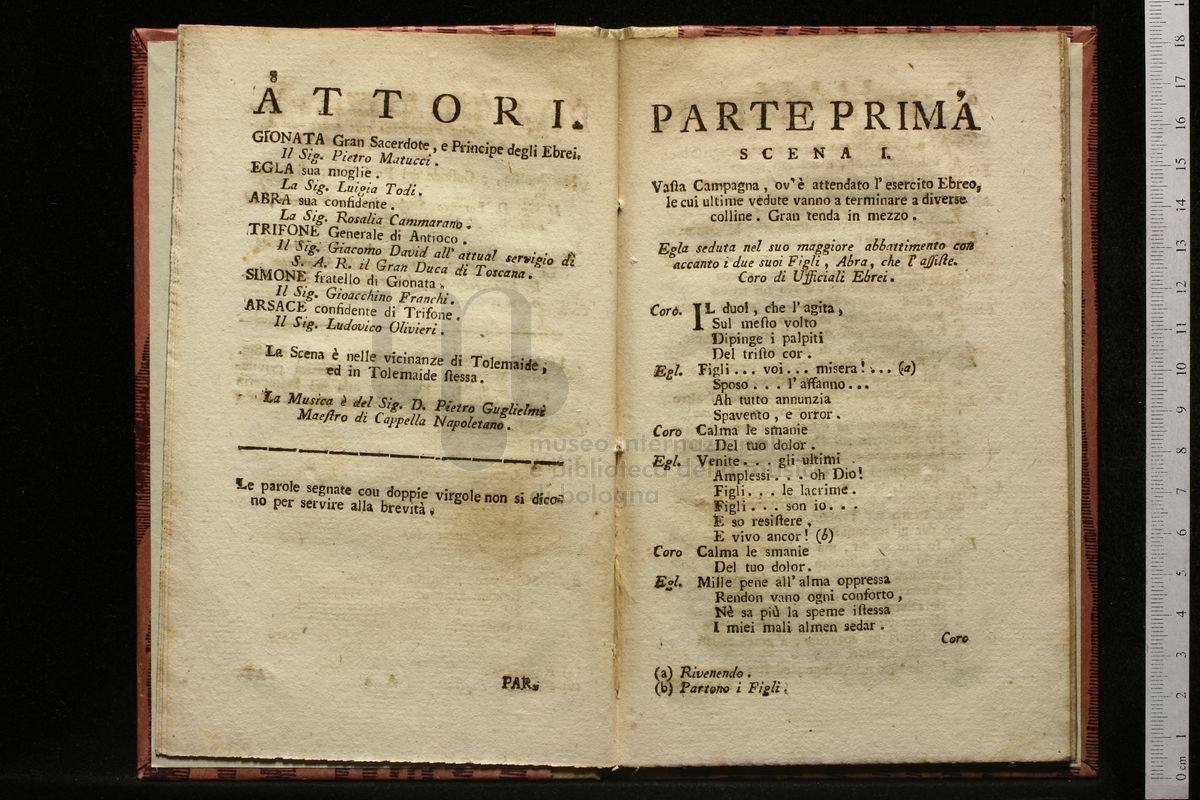 8
ATTORI.
GIONATA Gran Sacerdote, e Principe degli Ebrei.
Il Sig. Pietro Matucci.
EGLA sua moglie.
La Sig. Luigia Todi.
ABRA sua confidente.
La Sig. Rosalia Cammarano.
TRIFONE Generale di Antioco.
Il Sig. Giacomo David all' attual servigio di
S. A. R. il Gran Duca di Toscana.
SIMONE fratello di Gionata.
Il Sig. Gioacchino Franchi.
ARSACE confidente di Trifone.
Il Sig. Ludovico Olivieri.
La Scena è nelle vicinanze di Tolemaide,
ed in Tolemaide ſteſſa.
La Musica è del Sig. D. Pietro Guglielmi
Maeſtro di Cappella Napoletano.
Le parole segnate cou doppie virgole non si dico-
no per servire alla brevità.
PAR.
9
PARTE PRIMA
SCENA I.
Vaſta Campagna, ov' è attendato l' esercito Ebreo,
le cui ultime vedute vanno a terminare a diverse
colline. Gran tenda in mezzo.
Egla seduta nel suo maggiore abbattimento con
accanto i due suoi Figli, Abra, che l' aſſiſte.
Coro di Ufficiali Ebrei.
Coro. IL duol, che l' agita,
Sul meſto volto
Dipinge i palpiti
Del triſto cor.
Egl. Figli... voi... misera!... (a)
Sposo... l' affanno...
Ah tutto annunzia
Spavento, e orror.
Coro Calma le smanie
Del tuo dolor.
Egl. Venite... gli ultimi
Amplessi... oh Dio!
Figli... le lacrime.
Figli... son io...
E so resiſtere,
E vivo ancor! (b)
Coro Calma le smanie
Del tuo dolor.
Egl. Mille pene all' alma oppressa
Rendon vano ogni conforto,
Nè sa più la speme iſtessa
I miei mali almen sedar.
Coro
(a) Rivenendo.
(b) Partono i Figli.
museo internaz
e biblioteca della musica
di bologna
0 cm 1 2 3 4 5 6 7 8 9 10 11 12 13 14 15 16 17 18